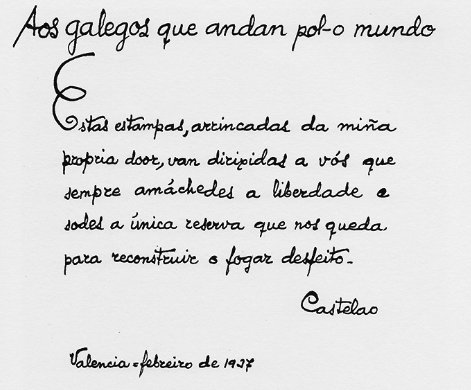 Aos galegos que andan pol-o mundo
Estas estampas, arrincadas da miña
propria door, van dirixidas a vós que
sempre amáchedes a liberdade e
sodes a única reserva que nos queda
para reconstruir o fogar desfeito.
Castelao
Valencia = febreiro de 1937